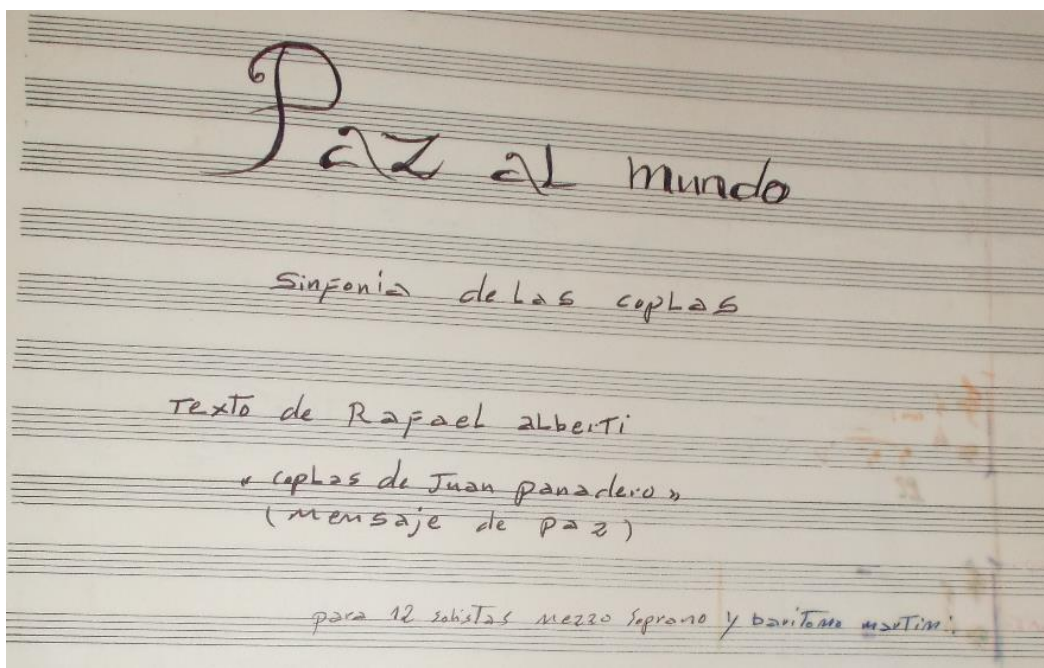 Paz al mundo
Sinfonia de las coplas
Texto de Rafael alberti
"coplas de Juan panadero"
(mensaje de paz)
para 12 solistas mezzo soprano y baritono martin: